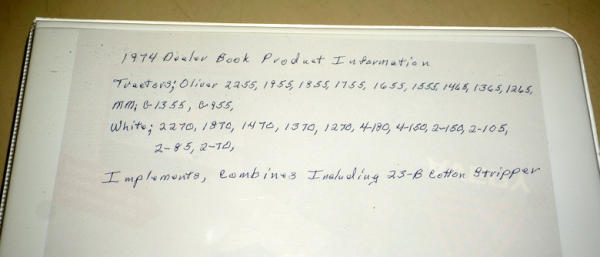 1974 Dealer Book Product Information
Tractors; Oliver 2255, 1955, 1855, 1755, 1655, 1555, 1465, 1365, 1265,
MM; G-1355, G-955,
White; 2270, 1870, 1470, 1370, 1270, 4-180, 4-150, 2-150, 2-105,
2-85, 2-70,
Implements, Combines Including 25-B Cotton Stripper